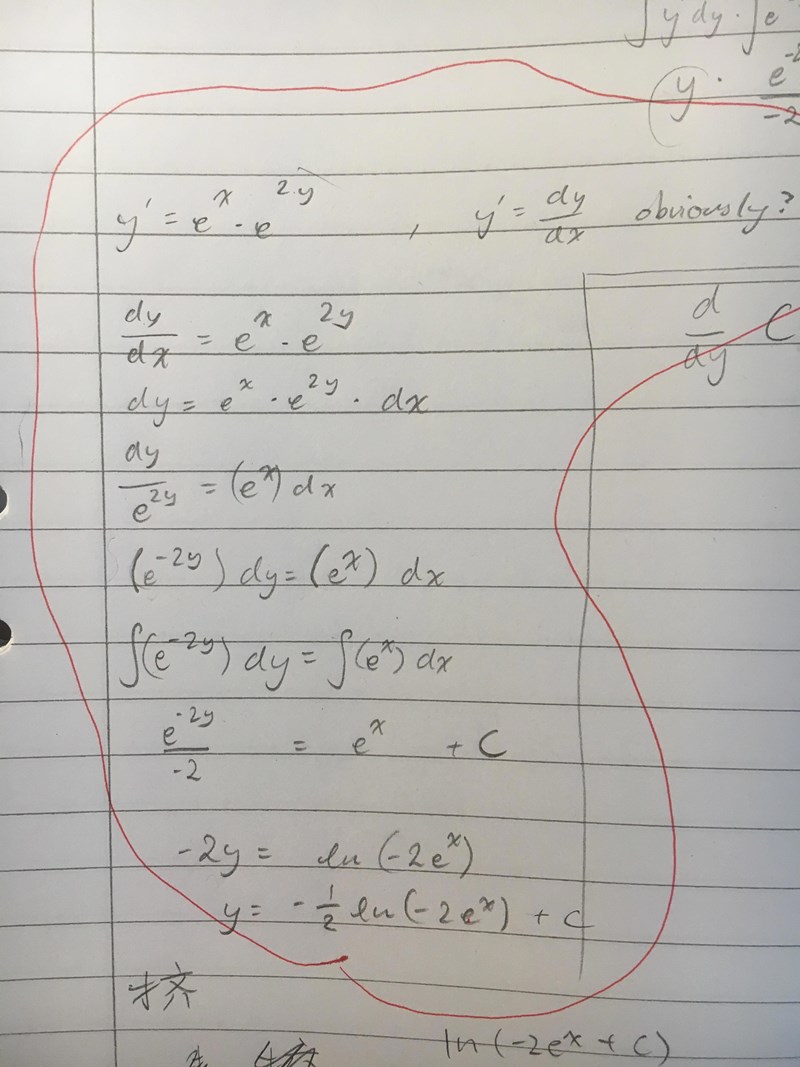 ∫y dy · ∫e
y · e^-2 / -2
y' = e^x · e^2·y , y' = dy/dx obviously?
dy/dx = e^x · e^2y
d/dy C
dy = e^x · e^2y · dx
dy/e^2y = (e^x) dx
(e^-2y) dy = (e^x) dx
∫(e^-2y) dy = ∫(e^x) dx
e^-2y/-2 = e^x + C
-2y = ln (-2e^x)
y = -1/2 ln (-2e^x) + C
挤
ln (-2e^x + C)